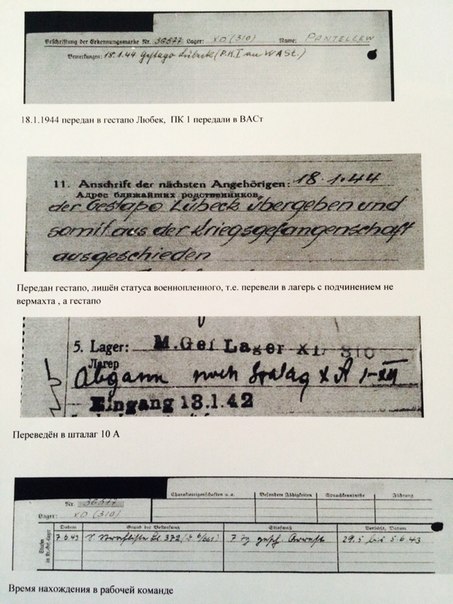 Beschriftung der Erkennungsmarke Nr. 36677 Lager: XD (310) Name: PANTELEEW
Bemerkungen: 18.1.44 Gestapo Lübeck (P.K.I an WASt.)
18.1.1944 передан в гестапо Любек, ПК 1 передали в ВАСт
11. Anschrift der nächsten Angehörigen: 18.1.44
Адрес ближайших родственников
der Gestapo Lübeck übergeben und
somit aus der Kriegsgefangenschaft
ausgeschieden
Передан гестапо, лишён статуса военнопленного, т.е. перевели в лагерь с подчинением не
вермахта , а гестапо
5. Lager: M. Gef Lager XI/ 310
Лагерь
Abgang nach Stalag X A
Eingang 13.1.42
Переведён в шталаг 10 А
Charaktereigenschaften u.a. Besondere Fähigkeiten Sprachkenntnisse Führung
Nr. 36677
Lager: XD (310)
Datum Grund der Bestrafung Strafmaß Verbüßt, Datum
7.6.43 7 Tg. gesch. Arrest 29.5 bis 5.6.43
Время нахождения в рабочей команде